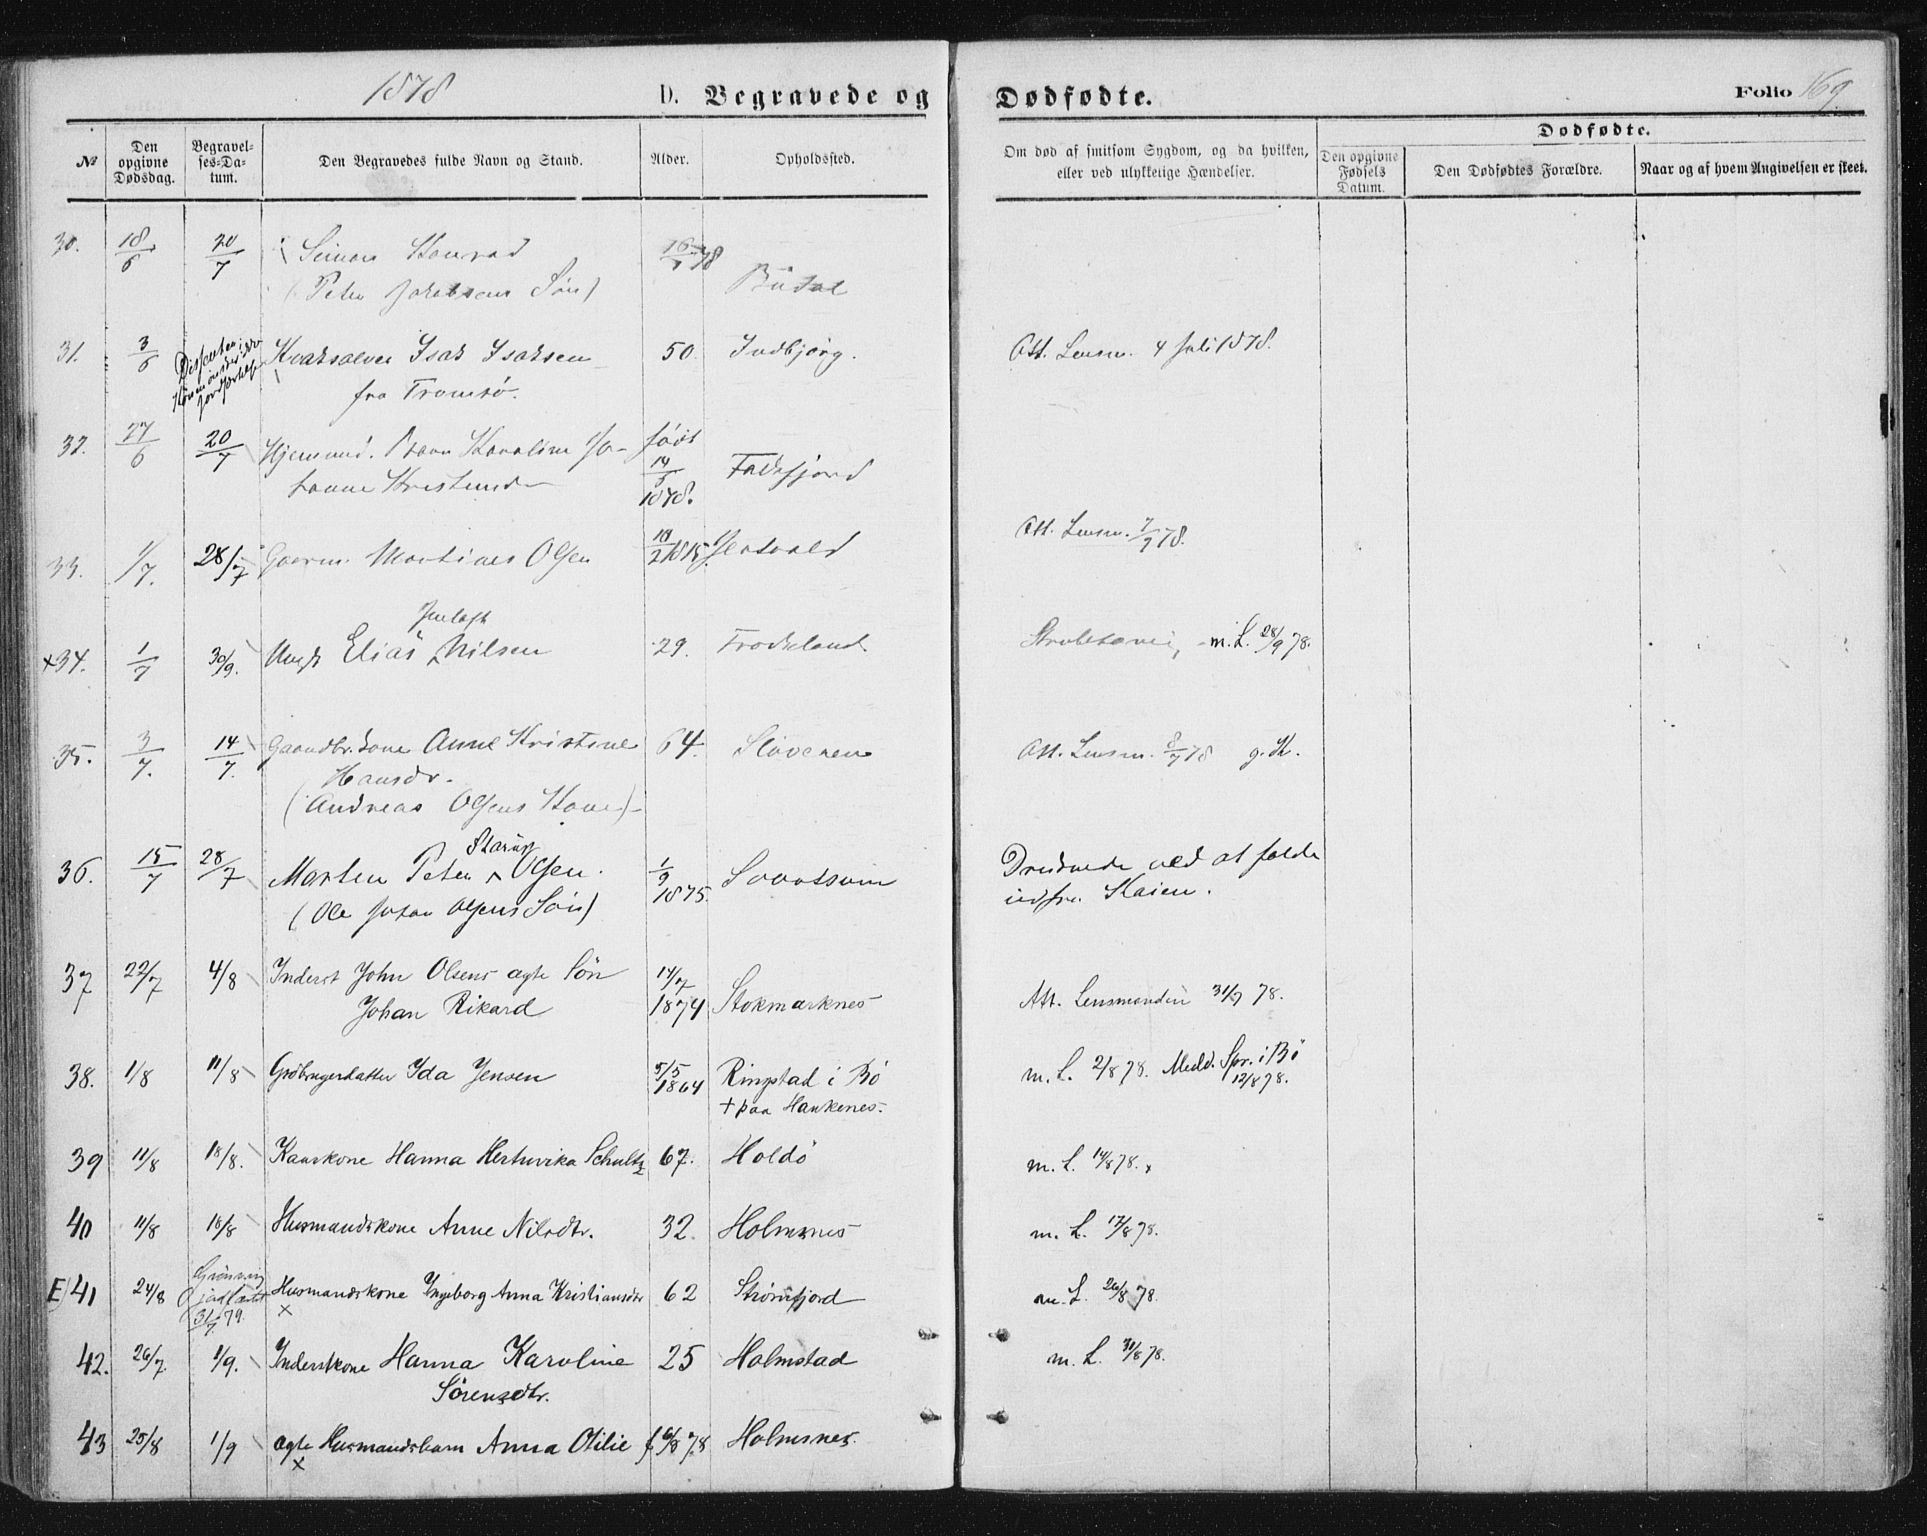 1878
D. Begravede og Dødfødte.
Folio 169
№
Den opgivne Dødsdag.
Begravelses-Datum.
Den Begravedes fulde Navn og Stand.
Alder.
Opholdssted.
Om død af smitsom Sygdom, og da hvilken, eller ved ulykkelige Hændelser.
Dødfødte.
Den opgivne Fødsels Datum.
Den Dødfødtes Forældre.
Naar og af hvem Angivelsen er skeet.
30. 18/6 20/7 Simon Konrad
(Peter Jakobsens Søn)
31. 3/6 Kvaksalver Isak Isaksen 50. Indbjørg. Att. Lensm. 4 Juli 1878.
fra Tromsø.
32. 27/6 20/7 Karoline Jo-
hanne født 14/5 1878. Fiskfjord
33. 1/7. 28/7 Gaarm. Martines Olsen 18/2 1815 Att. Lensm. 7/7 78.
Jenloft
x34. 1/7 30/9. Ungk Elias Nilsen 29. Frodeland m. L. 28/9 78.
35. 3/7. 14/7. Gaardbr. kone Anne Kristine 64. Sløveren Att. Lensm. 8/7 78 g. K.
Hansdr.
(Andreas Olsens Kone)
Starup
36. 15/7 28/7 Marten Peter Olsen. 1/9 1875. Druknede ved at falde
(Ole Johan Olsens Søn) ud fra Kaien.
37 22/7 4/8 Inderst John Olsens ægte Søn 14/7 1874 Stokmarknes Att. Lensmanden 31/7 78.
Johan Rikard
38. 1/8 11/8 Gbrugerdatter Ida Jensen 5/5 1864 Ringstad i Bø m. L. 2/8 78. Medd. Spr. i Bø 12/8 78.
+ paa Haukenes.
39 11/8 18/8. Kaarkone Hanna Hertuvika Schultz 67. Holdø m. L. 14/8 78.
40 11/8 18/8 Husmandskone Anne Nilsdtr. 32. Holmsnes m. L. 17/8 78.
E) 41 24/8 31/7 79. Husmandskone Ingeborg Anna Kristiansdtr 62 Strømfjord m. L. 26/8 78.
x
42. 26/7. 1/9. Inderstkone Hanna Karoline 25 Holmstad m. L. 31/8 78.
Sørensdtr.
43 25/8 1/9 ægte Husmandsbarn Anna Otilie f 6/8 78 Holmsnes.
x